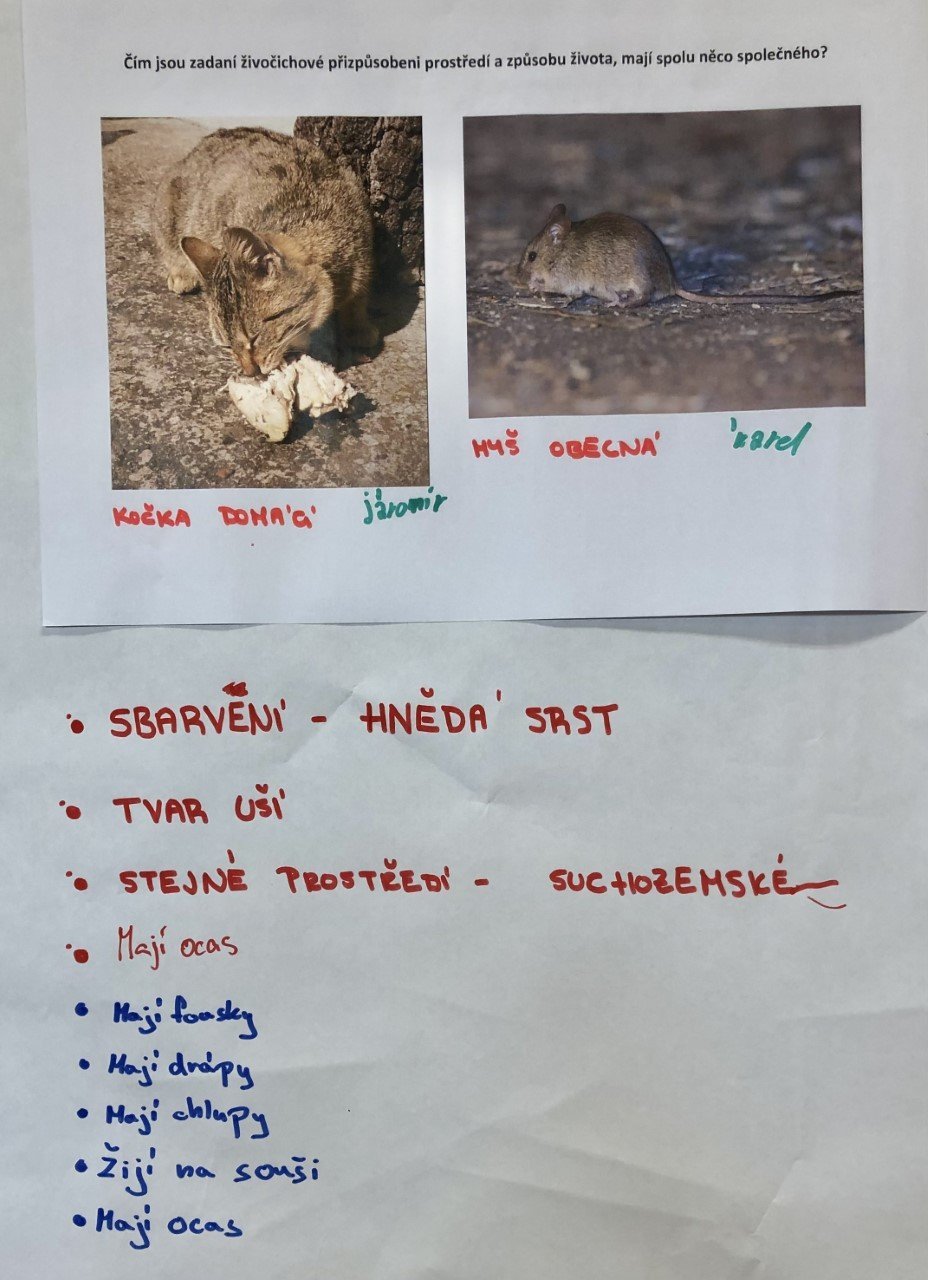 Čím jsou zadaní živočichové přizpůsobeni prostředí a způsobu života, mají spolu něco společného?
MYŠ OBECNÁ Karel
KOČKA DOMÁCÍ jaromír
• SBARVENÍ - HNĚDÁ SRST
• TVAR UŠÍ
• STEJNÉ PROSTŘEDÍ - SUCHOZEMSKÉ
• Mají ocas
• Mají fousky
• Mají drápy
• Mají chlupy
• Žijí na souši
• Mají ocas